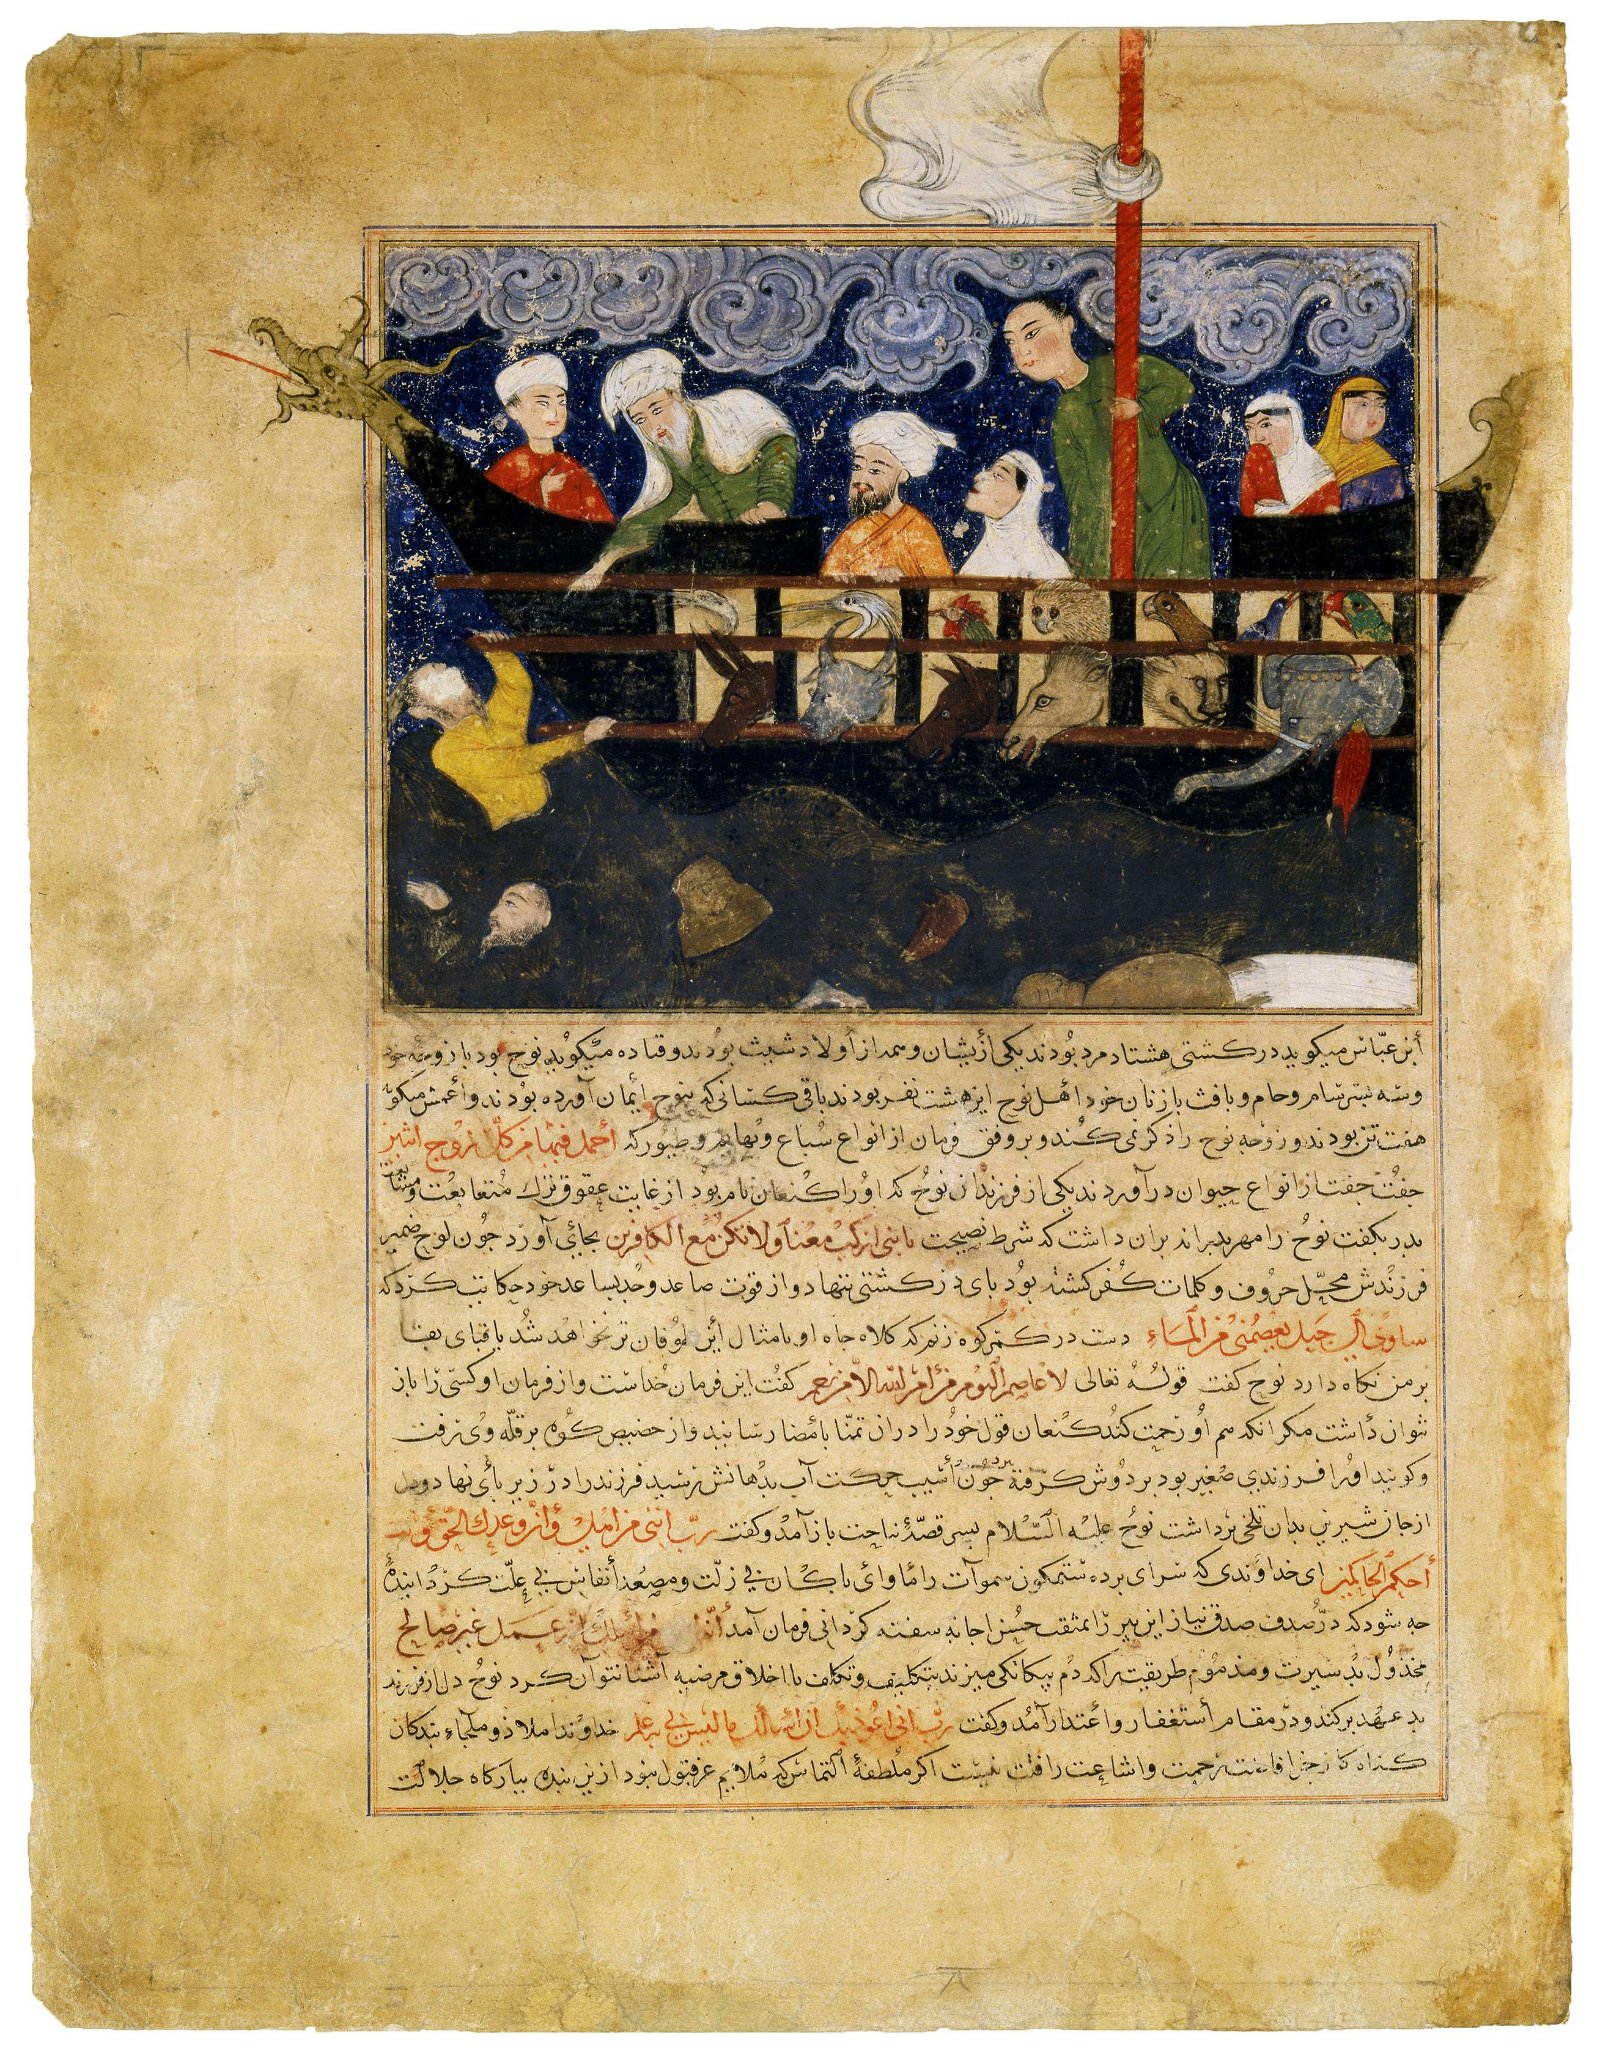 أبن عبّاس میکوید در کشتی هشتاد مرد بودند یکی از یشان وسمه از أولاد شیث بودند و قتاده میکوید نوح بود با زوجه خود
وسه بسر سام وحام ویافث با زنان خود اهل نوح این هشت نفر بودند باقی کسانی که بنوح ایمان آورده بودند وأعمش میکوید
هفت تن بودند وزوجه نوح را ذکر نمی کند و بر وفق فرمان از انواع سباع وبهایم وطیور که أحمل فیها من کل زوجین اثنین
جفت جفت از انواع حیوان در آوردند یکی از فرزندان نوح که اورا کنعان نام بود از غایت عقوق ترك متابعت
بدر بکفت نوح را مهر بدر بران داشت که شرط نصیحت یا بنی ارکب معنا ولا تکن مع الکافرین بجای آورد جون لوح ضمیر
فرزندش محل حروف وکلمات کفر کشته بود بای در کشتی ننهاد و از قوت ساعد خود حکایت کرد که
ساوی الی جبل یعصمنی من الماء دست در کمر کوه زنم که کلاه جاه او بامثال این طوفان تر نخواهد شد یا قبای بقا
بر من نکاه دارد نوح کفت قوله تعالی لا عاصم الیوم من أمر الله الا من رحم کفت این فرمان خداست واز فرمان او کسی را باز
نتوان داشت مکر انکه هم او رحمت کند کنعان قول خود را در ان تمنا بأمضا رسانید واز حضیض کوه بر قله وی رفت
وکویند اورا فرزندی صغیر بود بر دوش کرفته جون أسیب حرکت آب بدهانش رسید فرزند را در زیر بای نهاد ودل
از جان شیرین بدان تلخی برداشت نوح علیه السلام بسر قصه باز آمد وکفت رب ان ابنی من اهلی وان وعدك الحق وانت
أحکم الحاکمین ای خداوندی که سرای برده
جه شود که در صدف صدق نیاز این بیر را بمثقب حسن اجابه سفته کردانی فرمان آمد أنه لیس من أهلك انه عمل غیر صالح
مخذول بد سیرت ومذموم طریقت را که دم بیکانکی میزند بتکلیف وتکلف با اخلاق مرضیه آشنا نتوان کرد نوح دل از فرزند
بد عهد برکند ودر مقام أستغفار وأعتذار آمد وکفت رب انی اعوذ بك ان اسألك ما لیس لی به علم خداوندا ملاذ وملجاء بندکان
کناه کار جز افاضت رحمت واشاعت رافت نیست اکر ملطفه التماس که ملایم عز قبول نبود ازین بنده ببارکاه جلالت